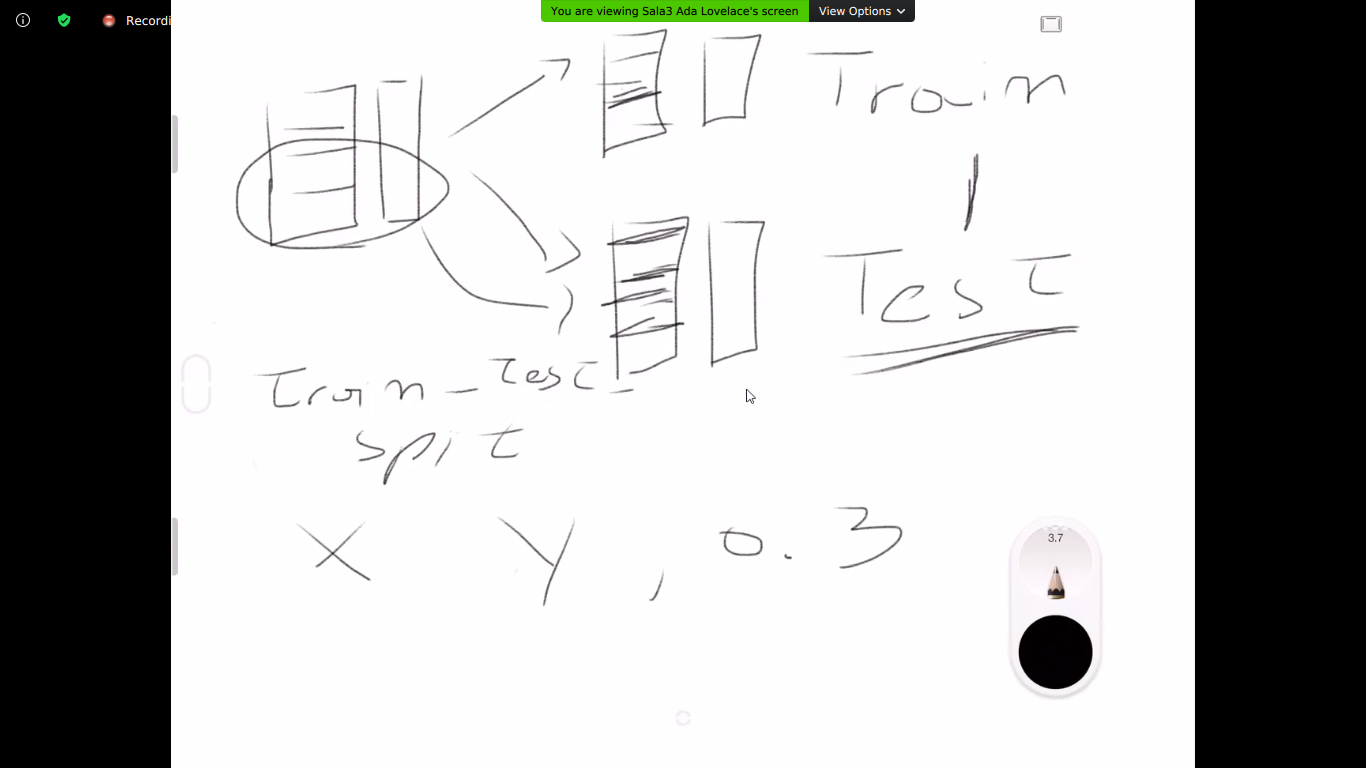 You are viewing Sala3 Ada Lovelace's screen
View Options
Recordi
Train
Test
Train_Test_
spit
X Y, 0.3
3.7